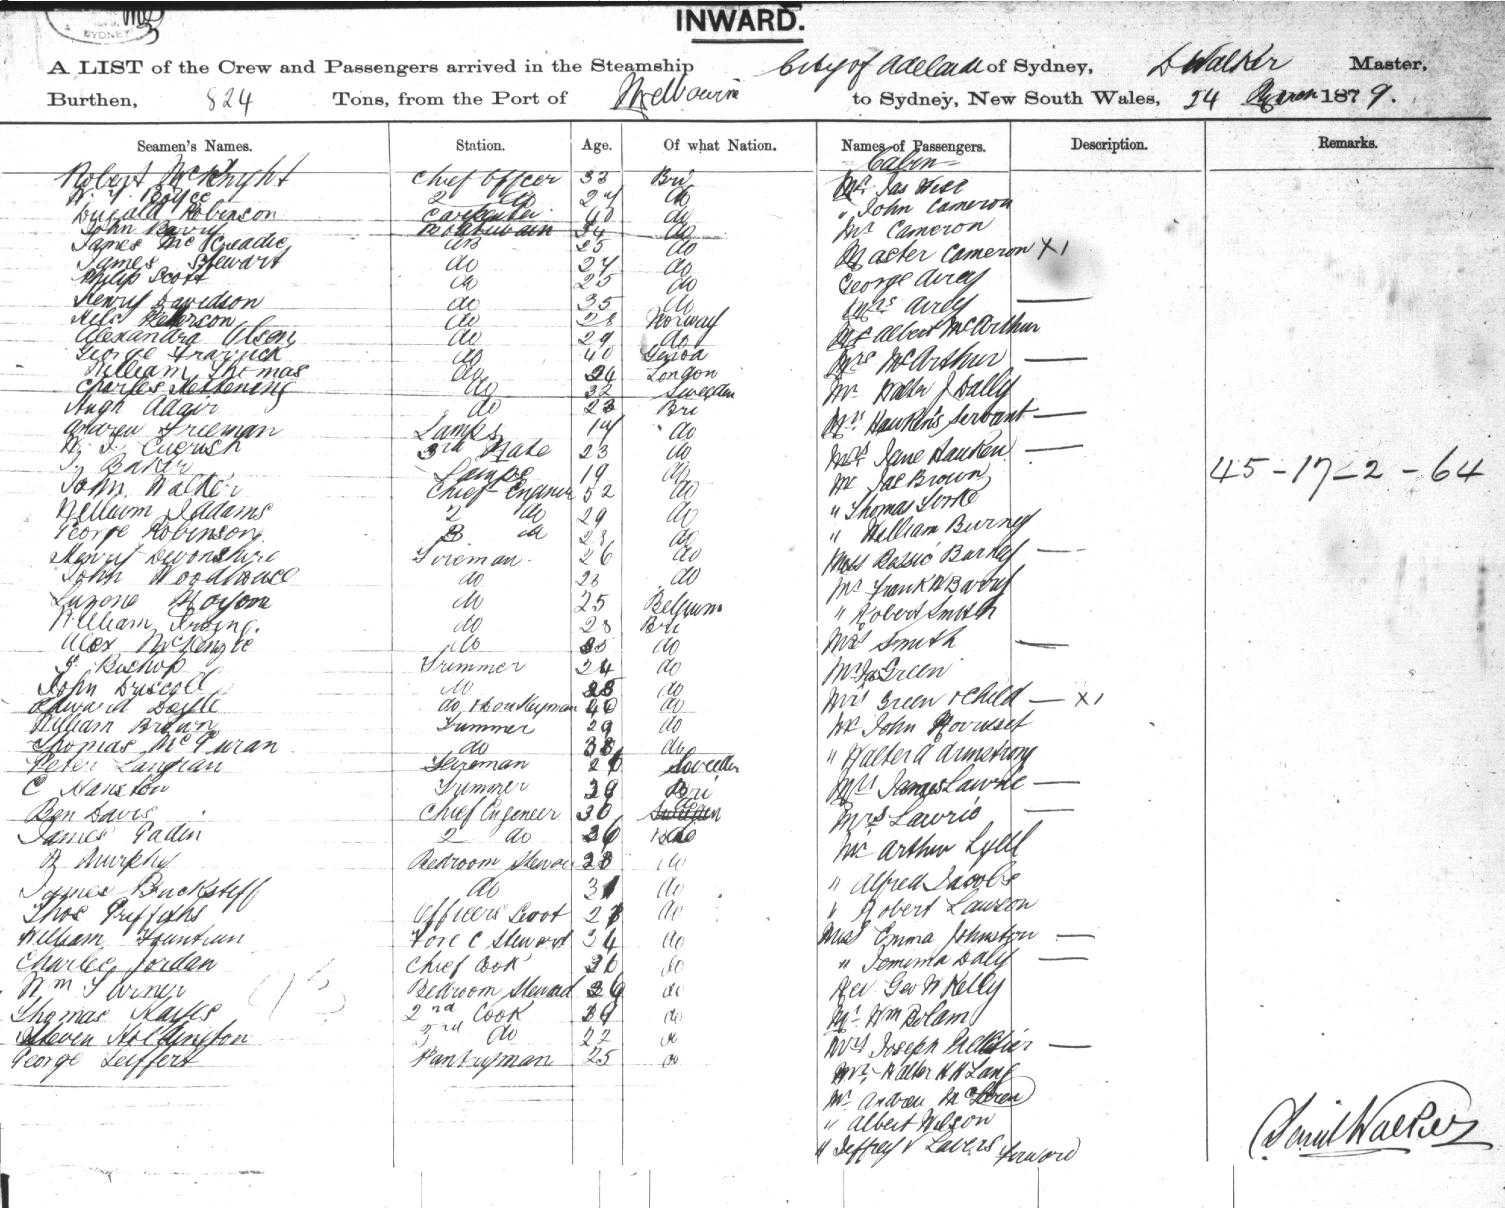 SYDNEY
INWARD.
A LIST of the Crew and Passengers arrived in the Steamship City of Adelaide of Sydney, D Walker Master,
Burthen, 824 Tons, from the Port of Melbourne to Sydney, New South Wales, 24 1879.
Seamen's Names. Station. Age. Of what Nation. Names of Passengers. Description. Remarks.
Cabin
Robert McKnight Chief Officer 33 Bri Mr Jas West
W. Y. Boyce 2 do 27 do " John Cameron
Donald Robinson Carpenter 40 do Mrs Cameron
John 34 do
James McCreadie AB 25 do Master Cameron X1
James Stewart do 27 do
Philip Scott do 25 do George Airey
Henry Davidson do 35 do Mrs Airey
Nels Peterson do 28 Norway Mr Albert McArthur
Alexandra Olsens do 29 do
George do 40 Genoa Mrs McArthur
William Thomas do 24 London
Charles do 32 Sweeden Mr Walter J Dally
Hugh Adair do 23 Bri
Andrew Freeman Lamps 17 do Mrs Hawken's Servant
W. J. 3rd Mate 23 do Mrs Jane Hawken
J. Baker Lamps 19 do Mr Jas Brown 45-17-2-64
John Walker Chief Engineer 52 do " Thomas
William Jaddams 2 do 29 do " William Burney
George Robinson 3 do 28 do
Henry Devonshire Fireman 26 do Miss Bessie Barkey
John Woodhouse do 28 do Mr Frank W Barry
do 25 Belgium " Robert Smith
William Irving do 28 Bri
Alex McKenzie do 35 do Mrs Smith
J. Bishop Trimmer 24 do Mr Jas Green
John Driscoll do 25 do Mrs Green & Child X1
Edward Doyle do & Donkeyman 40 do
William Brown Trimmer 29 do Mr John
Thomas McGuran do 38 do " Walter A Armstrong
Peter Langran Fireman 26 Sweeden
C Hanston Trimmer 28 Bri Mrs James Lawrie
Ben Davis Chief Engineer 30 do Mrs Lawrie
James Gadin 2 do 36 do Mr Arthur Lyell
B Murphy Bedroom Steward 28 do
James Buckstiff do 31 do " Alfred Jacobs
Thos Griffiths Officers Servt 27 do " Robert Lawson
William Fountain Fore C Steward 34 do Miss Emma Johnston
Charles Jordan Chief Cook 36 do " Jemima Daly
Wm Turner Bedroom Steward 39 do Rev Geo W Kelly
Thomas Hayes 2nd Cook 39 do Mr Wm Bolam
Steven Holdington 3rd do 22 do Mrs Joseph
George Leiffert Pantryman 25 do Mr Walter H H Lang
Mr Andrew McLaren
" Albert Wilson
" Jeffrey V Lavers forward
David Walker